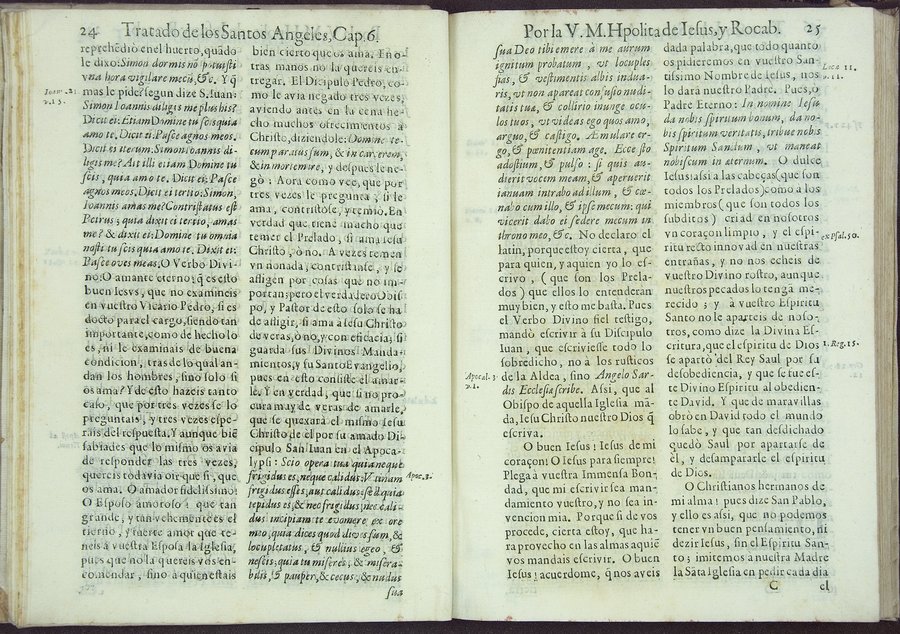 24 Tratado de los Santos Angeles, Cap. 6.
reprehedió en el huerto, quādo
le dixo: Simon dormis nō potuisti
vna hora vigilare mecū, &c. Y q̄
mas le pide? segun dize S. Iuan:
Ioan. 21.
Simon Ioannis diligis me plus his?
Dicit ei: Etiam Domine tu scis quia
amo te, Dicit ei: Pasce agnos meos.
Dicit ei iterum: Simon Ioannis di-
ligis me? Ait illi etiam Domine tu
scis, quia amo te. Dicit ei: Pasce
agnos meos. Dicit ei tertio: Simon,
Ioannis amas me? Contristatus est
Petrus; quia dixit ei tertio, amas
me? & dixit ei: Domine tu omnia
nosti tu scis quia amo te. Dixit ei:
Pasce oves meas. O Verbo Divi-
no! O amante eterno! q̄ es esto
buen Iesvs, que no examineis
en vuestro Vicario Pedro, si es
docto para el cargo, siendo tan
importante, como de hecho lo
es, ni le examinais de buena
condicion, tras de lo qual an-
dan los hombres, sino solo si
os ama? Y de esto hazeis tanto
caso, que por tres vezes se lo
preguntais, y tres vezes espe-
rais del respuesta. Y aunque biē
sabiades que lo mismo os avia
de responder las tres vezes,
quereis todavia oir que si, que
os ama. O amador fidelissimo!
O Esposo amoroso! que tan
grande, y tan vehemente es el
tierno, y fuerte amor que te-
neis à vuestra Esposa la Iglesia,
pues que no la quereis vos en-
comendar, sino à quien estais
bien cierto que os ama. En o-
tras manos no la quereis en-
tregar. El Dicipulo Pedro, co-
mo le avia negado tres vezes,
aviendo antes en la cena he-
cho muchos ofrecimientos à
Christo, diziendole: Domine te-
cum paratus sum, & in carcerem,
& in mortem ire, y despues le ne-
gò: Aora como vee, que por
tres vezes le pregunta, si le
ama, contristòse, y temiò. En
verdad que tiene mucho que
temer el Prelado, si ama Iesu
Christo, ò no. A vezes temen
vn nonada, contristanse, y se
afligen por cosas que no im-
portan; pero el verdadero Obis-
po, y Pastor de esto solo se ha
de afligir, si ama à Iesu Christo
de veras, ò no, y con eficacia; si
guarda sus Divinos Manda-
mientos, y su Santo Evangelio,
pues en esto consiste el amar-
le. Y en verdad, que si no pro-
cura muy de veras de amarle,
que se quexarà el mismo Iesu
Christo de èl por su amado Di-
cipulo San Iuan en el Apoca-
lypsi: Scio opera tua quia neque
Apoc. 3.
frigidus es, neque calidus: Vtinam
frigidus esses, aut calidus: sed quia
tepidus es, & nec frigidus, nec cali-
dus: incipiam te evomere ex ore
meo, quia dices quod dives sum, &
locupletatus, & nullius egeo, &
nescis; quia tu miser es, & misera-
bilis, & pauper, & cecus, & nudus
sua
Por la V. M. Hpolita de Iesus, y Rocab. 25
sua Deo tibi emere à me aurum
ignitum probatum, vt locuples
fias, & vestimentis albis indua-
ris, vt non apareat confusio nudi-
tatis tua, & collirio inunge ocu-
los tuos, vt videas ego quos amo,
arguo, & castigo. Æmulare er-
go, & pœnitentiam age. Ecce sto
ad ostium, & pulso: si quis au-
dierit vocem meam, & aperuerit
ianuam intrabo ad illum, & cœ-
nabo cum illo, & ipse mecum: qui
vicerit dabo ei sedere mecum in
throno meo, &c. No declaro el
latin, porque estoy cierta, que
para quien, y a quien yo lo es-
crivo, (que son los Prela-
dos) que ellos lo entenderan
muy bien, y esto me basta. Pues
el Verbo Divino fiel testigo,
mandò escrivir à su Discipulo
Iuan, que escriviesse todo lo
sobredicho, no à los rusticos
de la Aldea, sino Angelo Sar-
Apocal. 3.
dis Ecclesia scribe. Assi, que al
Obispo de aquella Iglesia mā-
da, Iesu Christo nuestro Dios q̄
escriva.
O buen Iesus! Iesus de mi
coraçon! O Iesus para siempre!
Plega à vuestra immensa Bon-
dad, que mi escrivir sea man-
damiento vuestro, y no sea in-
vencion mia. Porque si de vos
procede, cierta estoy, que ha-
ra provecho en las almas aquiē
vos mandais escrivir. O buen
Iesus! acuerdome, q̄ nos aveis
dada palabra, que todo quanto
os pidieremos en vuestro San-
Luca 11.
tissimo Nombre de Iesus, nos
lo darà nuestro Padre. Pues, ò
Padre Eterno: In nomine Iesu
da nobis spiritum bonum, da no-
bis spiritum veritatis, tribue nobis
Spiritum Sanctum, vt maneat
nobiscum in eternum. O dulce
Iesus! assi a las cabeças (que son
todos los Prelados) como a los
miembros (que son todos los
subditos) criad en nosotros
vn coraçon limpio, y el espi-
ex Psal. 50.
ritu recto innovad en nuestras
entrañas, y no nos echeis de
vuestro Divino rostro, aunque
nuestros pecados lo tengā me-
recido; y à vuestro Espiritu
Santo no le aparteis de noso-
tros, como dize la Divina Es-
critura, que el espiritu de Dios
1. Reg. 15.
se apartò del Rey Saul por su
desobediencia, y que se fue es-
te Divino Espiritu al obedien-
te David. Y que de maravillas
obrò en David todo el mundo
lo sabe, y que tan desdichado
quedò Saul por apartarse de
èl, y desampararle el espiritu
de Dios.
O Christianos hermanos de
mi alma! pues dize San Pablo,
y ello es assi, que no podemos
tener vn buen pensamiento, ni
dezir Iesus, sin el Espiritu San-
to; imitemos a nuestra Madre
la Sāta Iglesia en pedir cada dia
C el